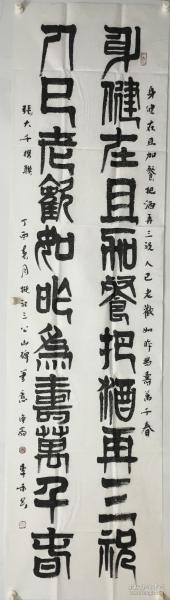 身健在且加餐把酒再三祝人已老歡如昨為壽萬千春
身健在且加餐把酒再三祝
人已老歡如昨為壽萬千春
張大千撰聯
丁酉春月擬祀三公山碑筆意